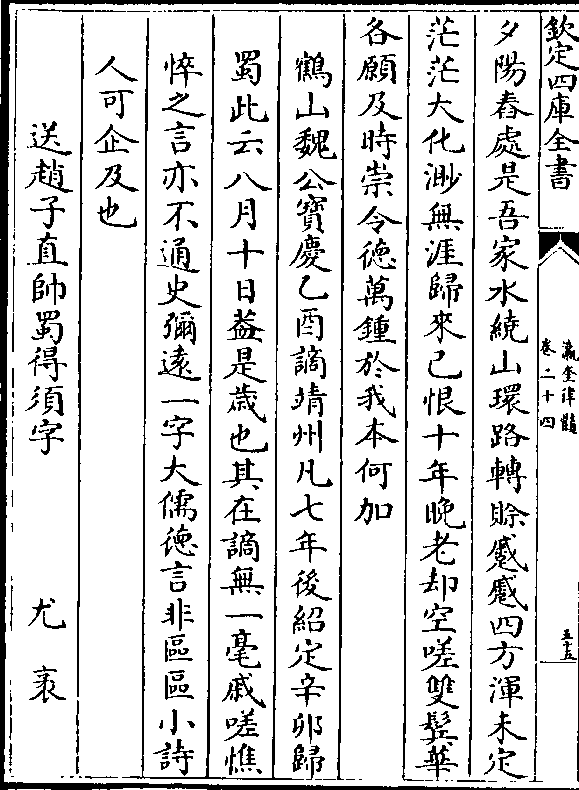 欽定四庫全書
瀛奎律髓
卷二十四
五十五
夕陽舂處是吾家水繞山環路轉賒蹙蹙四方渾未定
茫茫大化渺無涯歸來已恨十年晚老却空嗟雙鬂華
各願及時崇令德萬鍾於我本何加
鶴山魏公寳慶乙酉謫靖州凡七年後紹定辛卯歸
蜀此云八月十日葢是歳也其在謫無一毫戚嗟憔
悴之言亦不通史彌逺一字大儒徳言非區區小詩
人可企及也
送趙子直帥蜀得須字
尤袤